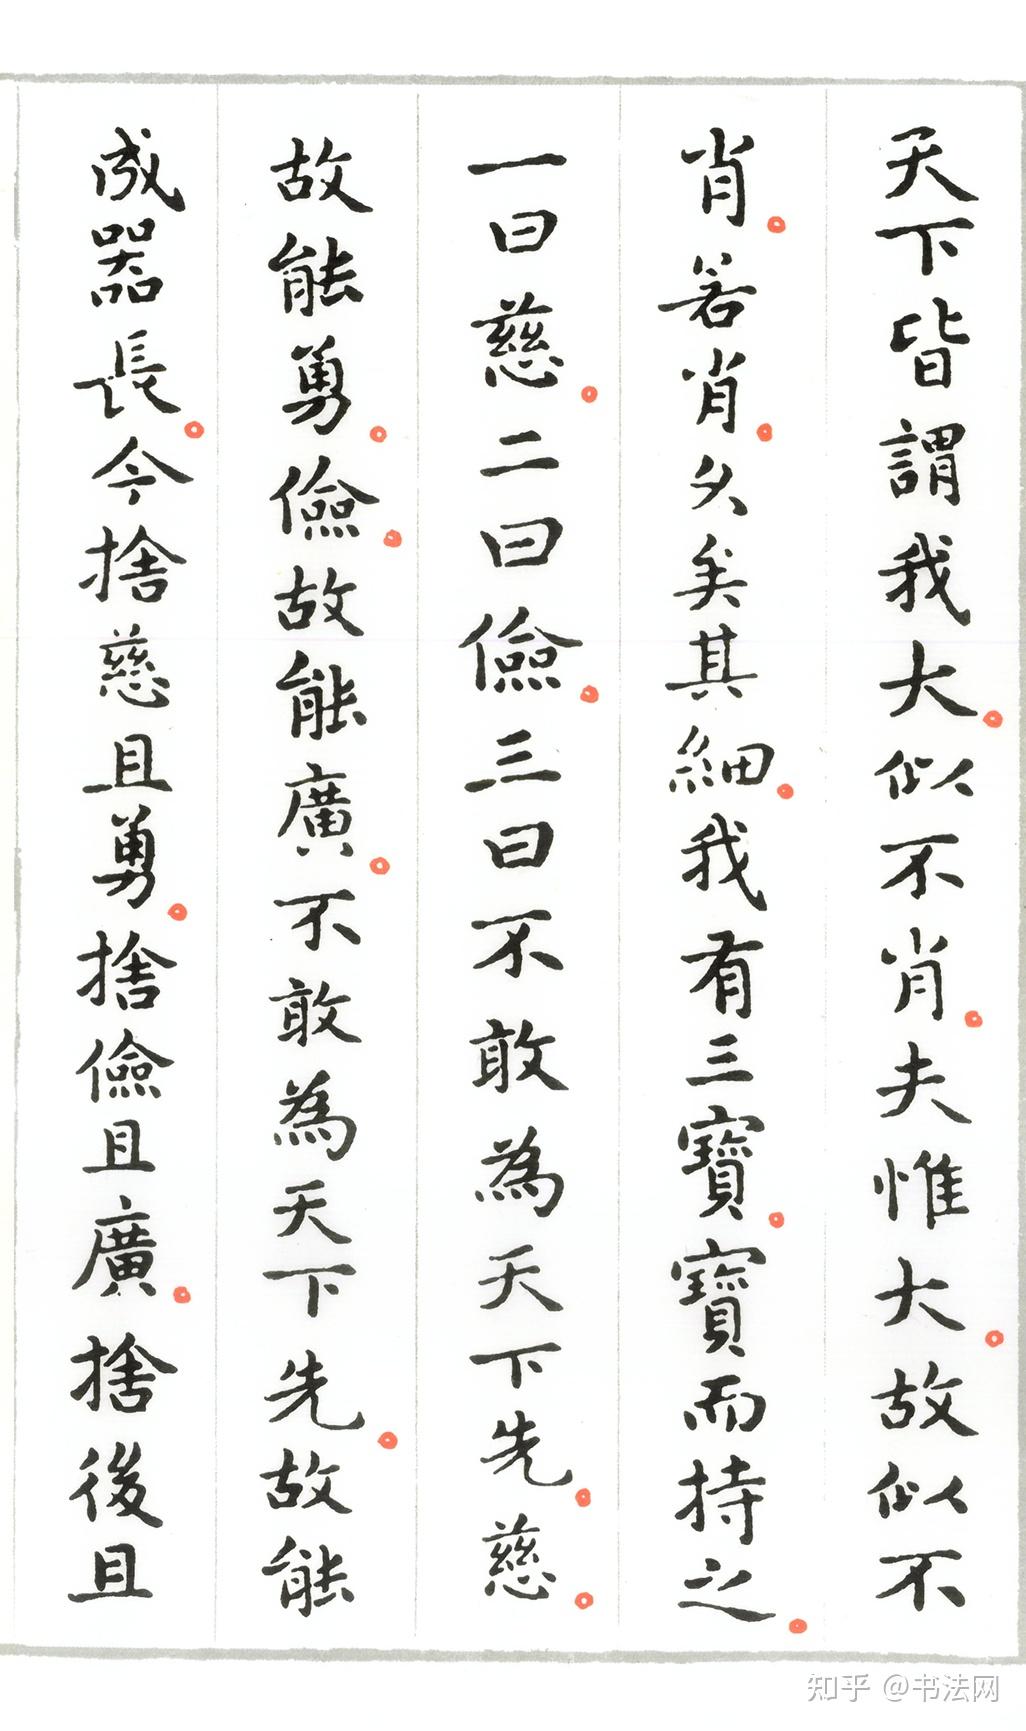 天下皆謂我大。似不肖。夫惟大。故似不
肖。若肖。久矣其細。我有三寶。寶而持之。
一曰慈。二曰儉。三曰不敢為天下先。慈。
故能勇。儉。故能廣。不敢為天下先。故能
成器長。今捨慈且勇。捨儉且廣。捨後且
知乎 @书法网